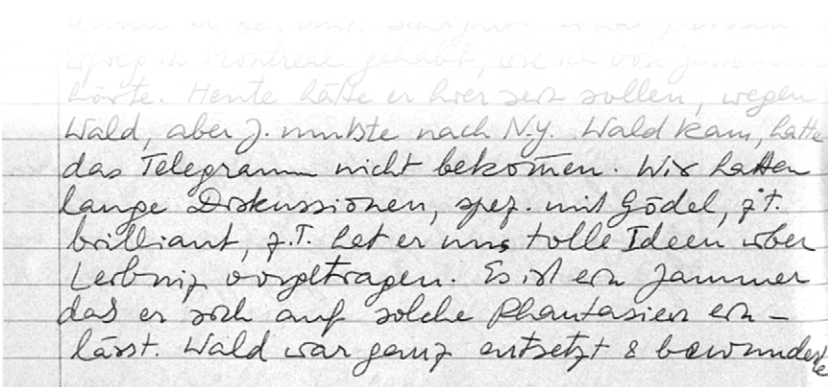 Erfolg in Montreal gehabt, wie ich von
hörte. Heute hätte er hier sein sollen, wegen
Wald, aber J. musste nach N.Y. Wald kam, hatte
das Telegramm nicht bekom̄en. Wir hatten
lange Diskussionen, spez. mit Gödel, z.T.
brilliant, z.T. hat er uns tolle Ideen über
Leibniz vorgetragen. Es ist ein Jammer
das er sich auf solche Phantasien ein-
lässt. Wald war ganz entsetzt & bewunderte